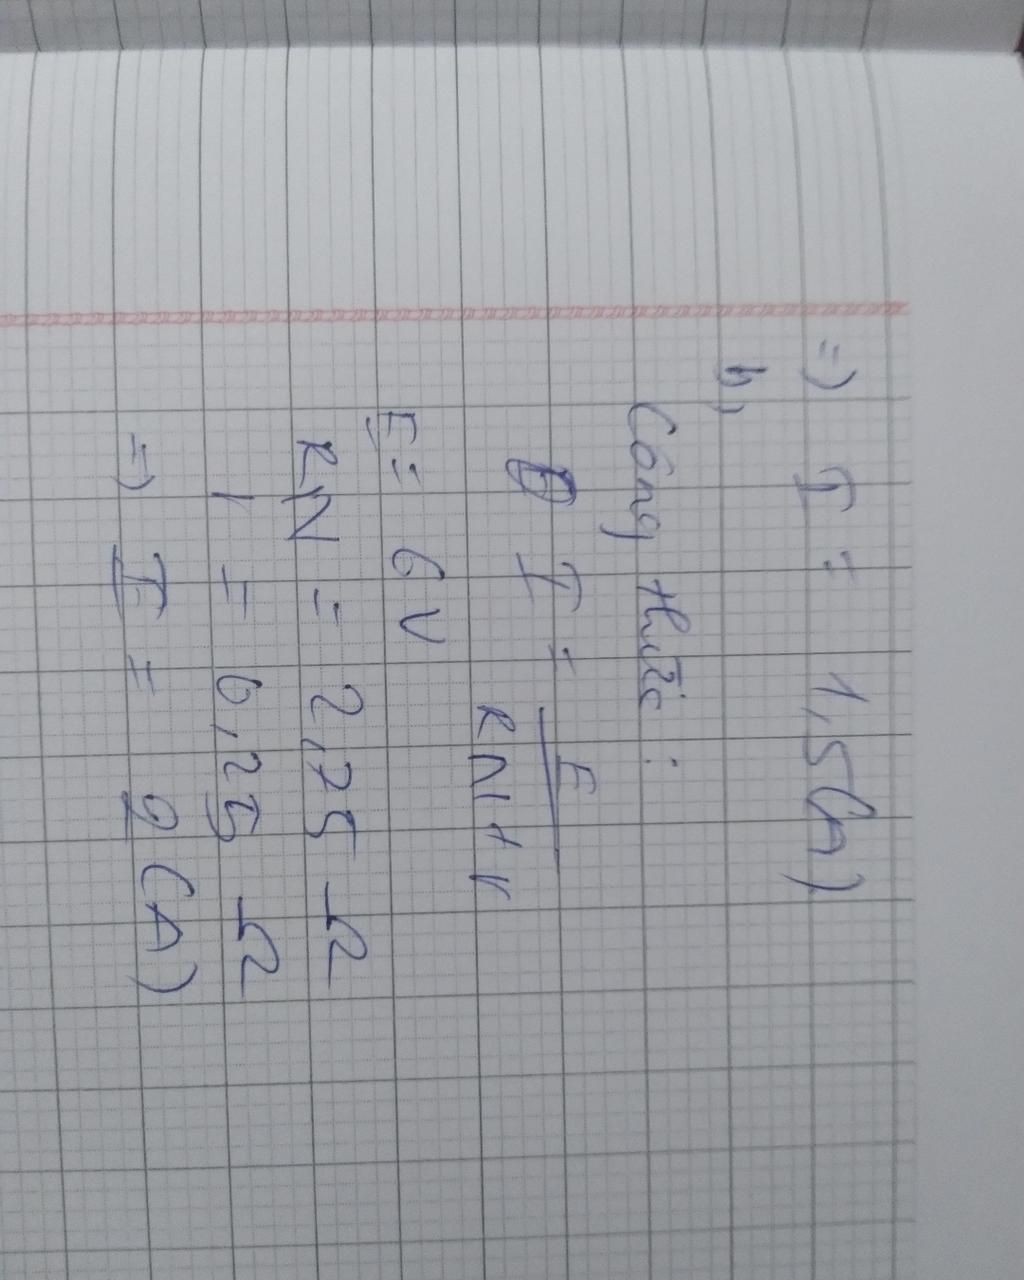 =) I = 1,5(A)
b,
Công thức :
I = E / RN + r
E = 6V
RN = 2,75 Ω
r = 0,25 Ω
=) I = 2 (A)